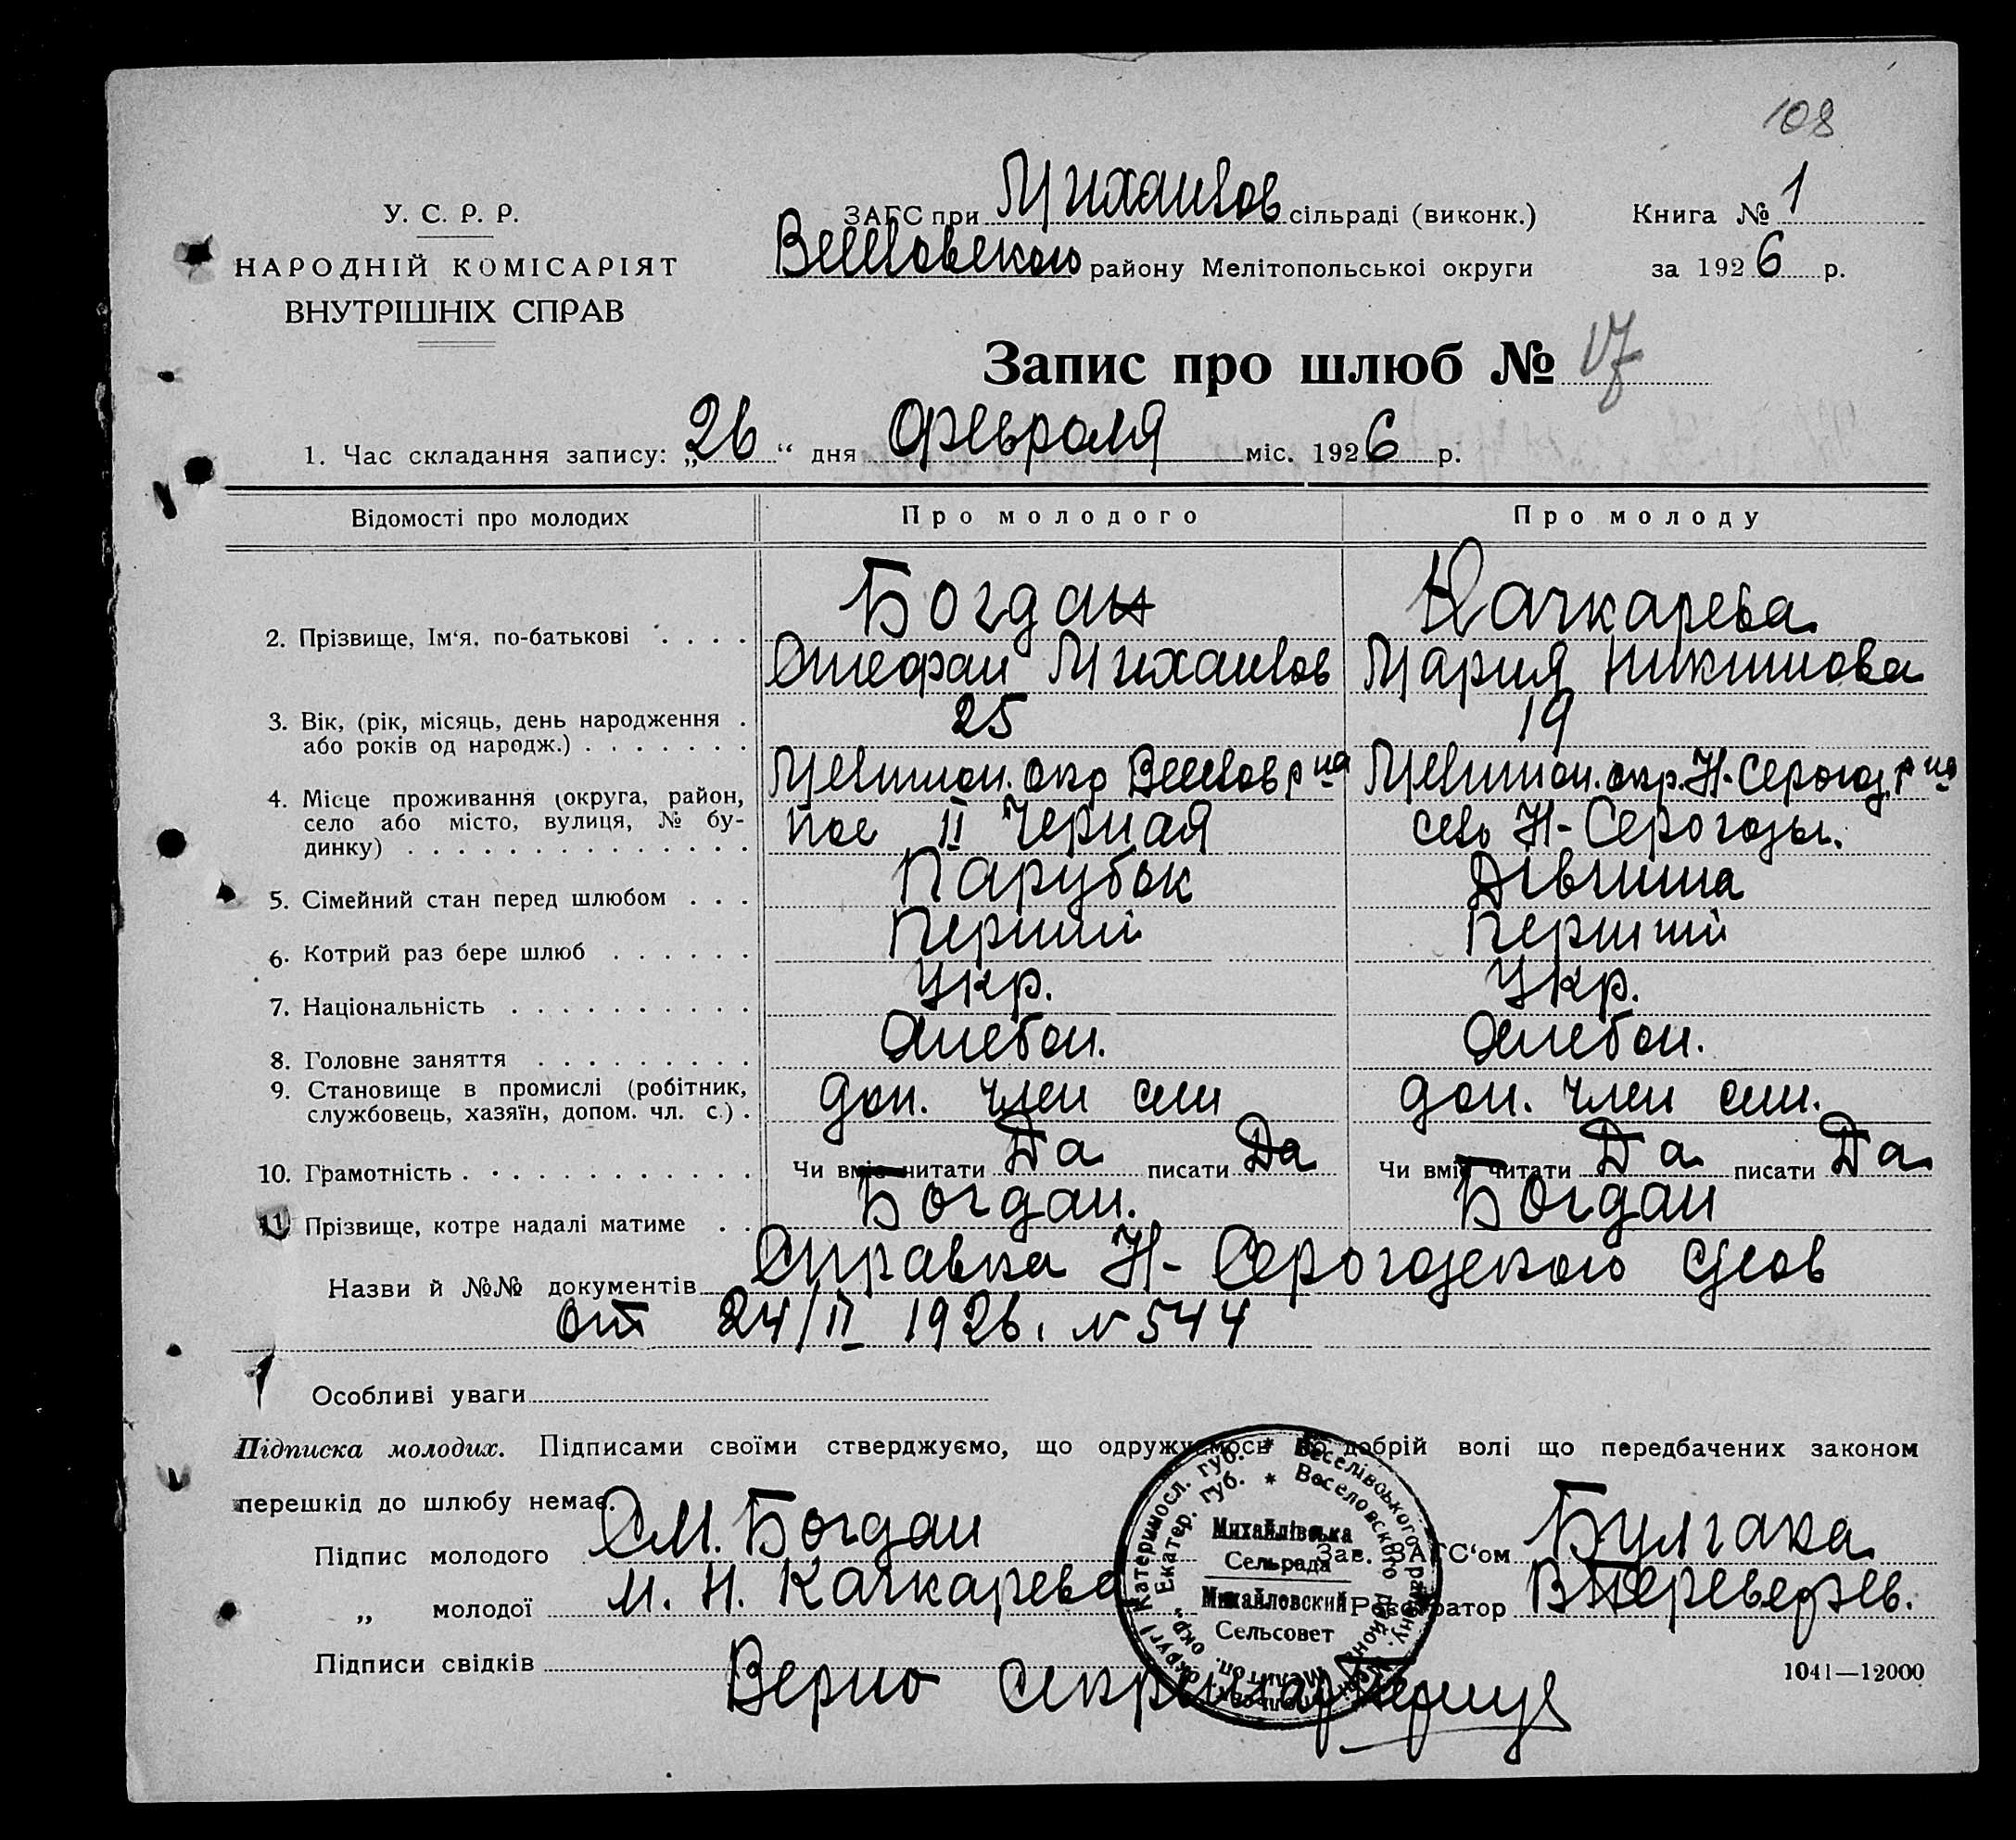 108
У. С. Р. Р.
НАРОДНІЙ КОМІСАРІЯТ
ВНУТРІШНІХ СПРАВ
ЗАГС при Михайлов сільраді (виконк.)
Веселовского району Мелітопольської округи
Книга № 1
за 1926 р.
Запис про шлюб № 17
1. Час складання запису: „26“ дня февраля міс. 1926 р.
Відомості про молодих
Про молодого
Про молоду
2. Прізвище, Ім‘я, по-батькові . . . .
Богдан
Стефан Михайлов
Качкарева
Мария Никитова
3. Вік, (рік, місяць, день народження .
або років од народж.) . . . . . . .
25
19
4. Місце проживання (округа, район,
село або місто, вулиця, № бу-
динку) . . . . . . . . . . . . . .
Мелитоп. окр Веселов р на
пос II Черная
Мелитоп. окр. Н-Серогоз. р на
село Н-Серогозы.
5. Сімейний стан перед шлюбом . . .
Парубок
Дівчина
6. Котрий раз бере шлюб . . . . . .
Перший
Перший
7. Національність . . . . . . . . . .
Укр.
Укр.
8. Головне заняття . . . . . . . . .
Хлебоп.
Хлебоп.
9. Становище в промислі (робітник,
службовець, хазяїн, допом. чл. с.) .
доп. член сем
доп. член сем.
10. Грамотність . . . . . . . . . . . .
Чи вміє читати Да писати Да
Чи вміє читати Да писати Да
11. Прізвище, котре надалі матиме . .
Богдан.
Богдан
Назви й №№ документів Справка Н-Серогозского
от 24/II 1926. № 544
Особливі уваги
Підписка молодих. Підписами своїми стверджуємо, що одружуємось по добрій волі що передбачених законом
перешкід до шлюбу немає.
Підпис молодого С.М. Богдан
„ молодої М. Н. Качкарева
Підписи свідків
Зав. ЗАГС‘ом Булгака
Реєстратор
Верно Секретарь
Михайлівська
Сельрада
Михайловский
Сельсовет
1041—12000